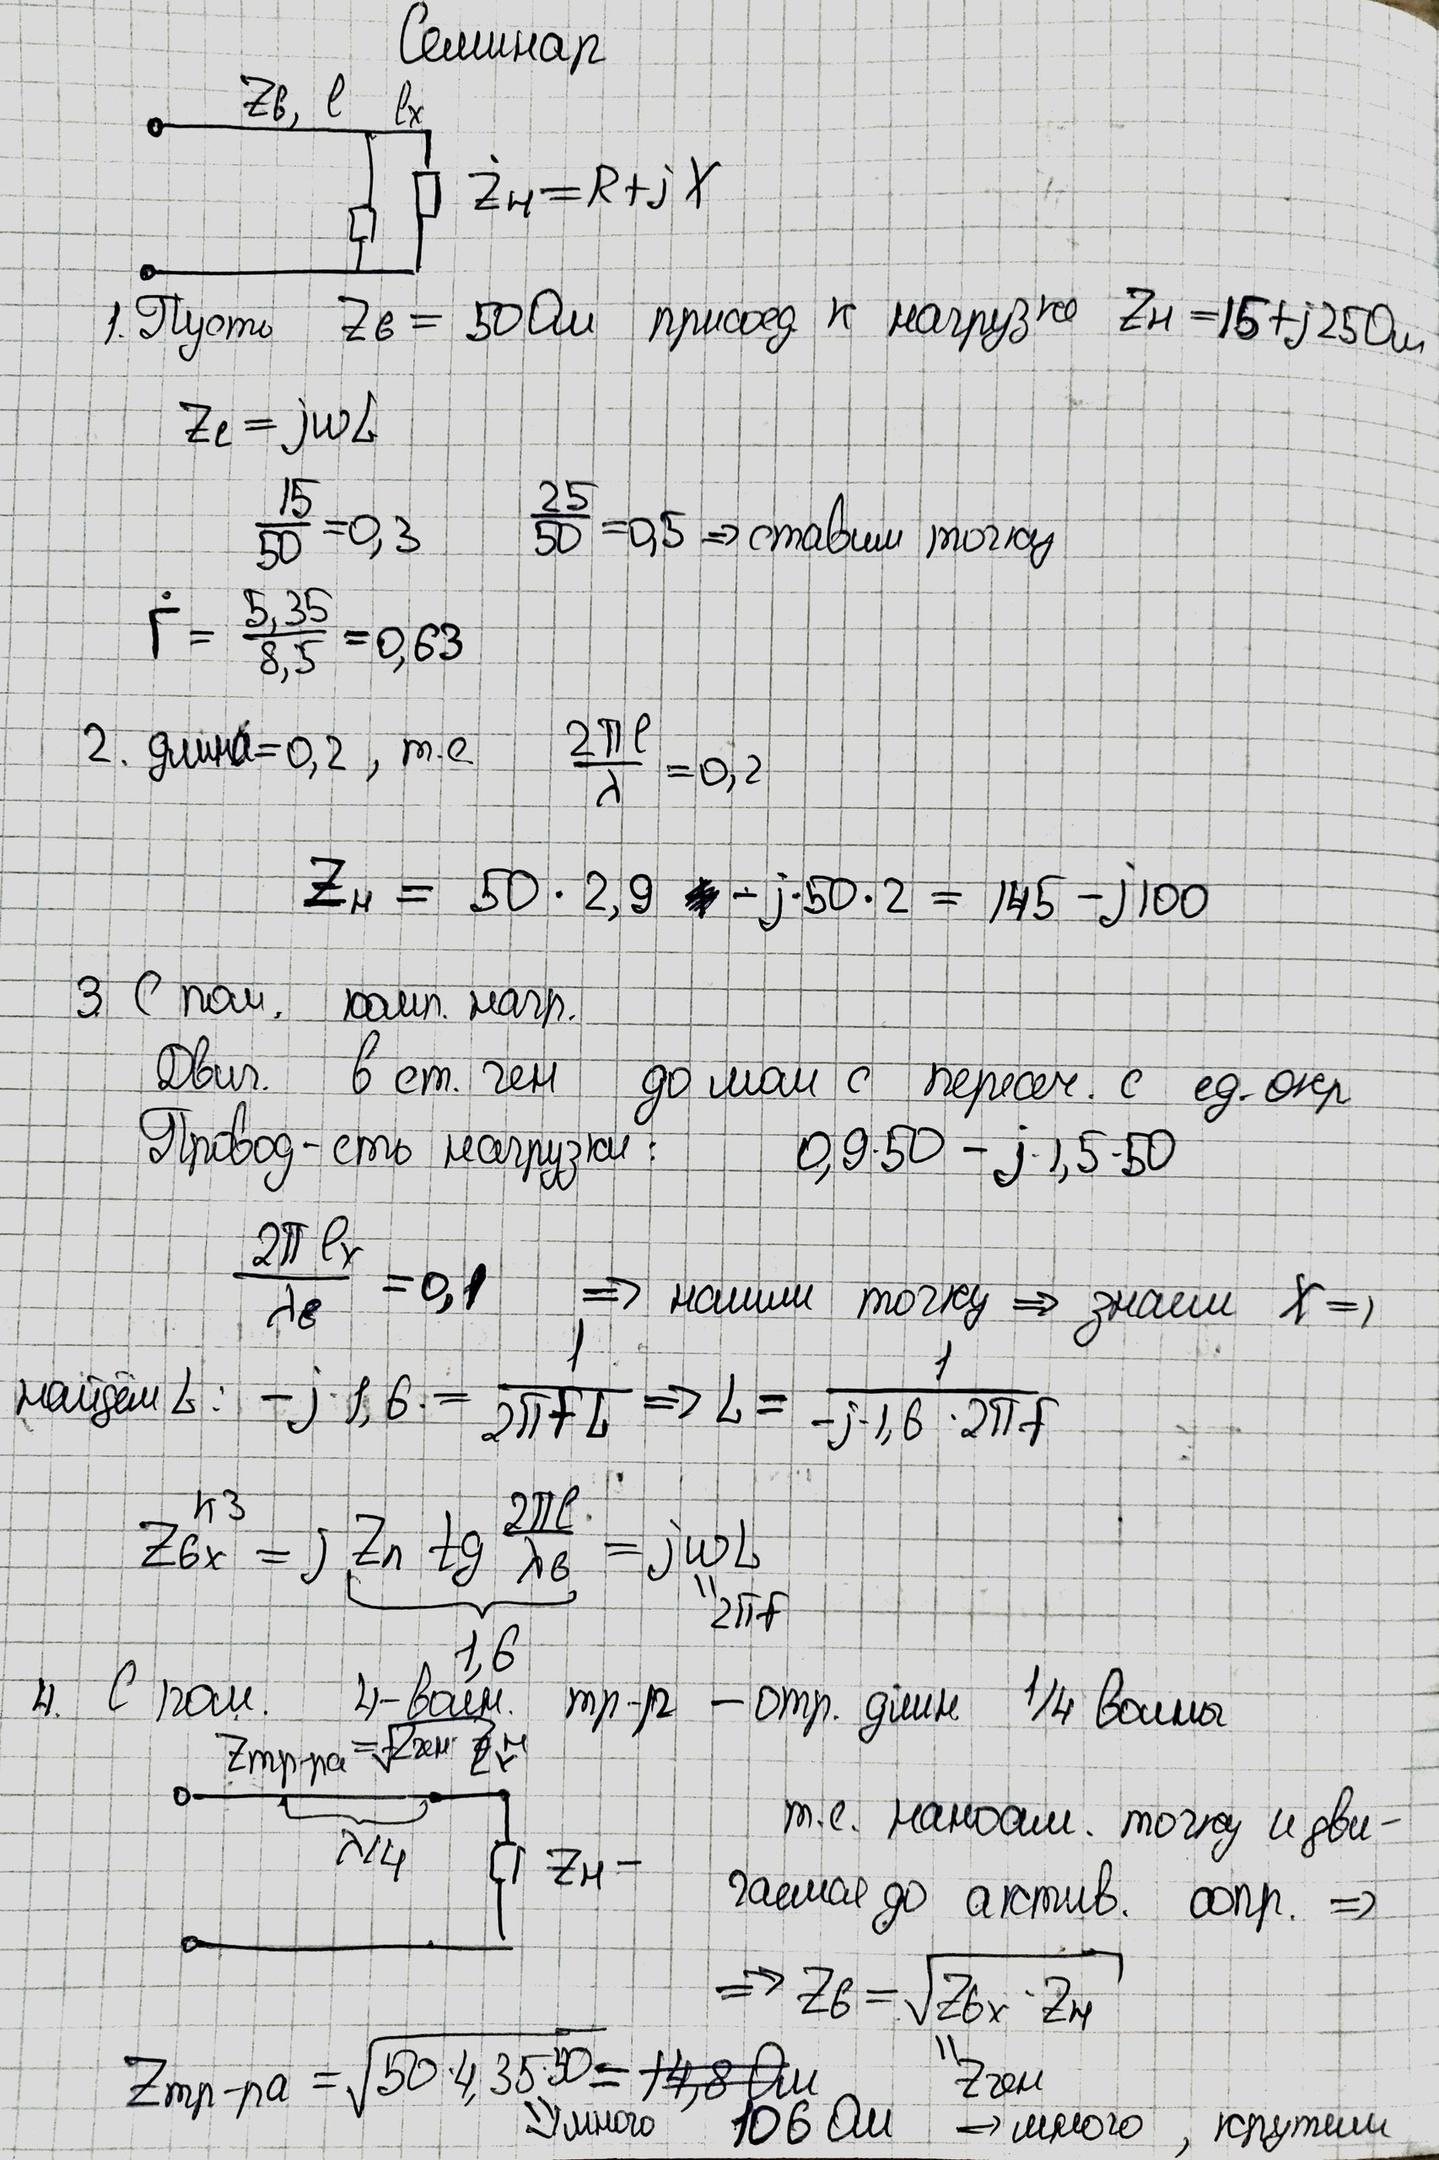 Семинар
Zв, l lx
Żн = R + jX
1. Пусть Zв = 50 Ом присоед к нагрузке Zн = 15 + j25 Ом
Ze = jωL
15/50 = 0,3 25/50 = 0,5 ⇒ ставим точку
Γ̇ = 5,35/8,5 = 0,63
2. длина = 0,2, т.е 2πl/λ = 0,2
Zн = 50 · 2,9 - j·50·2 = 145 - j100
3 С пом. комп. нагр.
Двиг. в ст. ген до мом с пересеч. с ед. окр
Провод-сть нагрузки: 0,9·50 - j·1,5·50
2πlx/λв = 0,1 ⇒ нашли точку ⇒ знаем X ⇒
найдём L: -j·1,6· = 1/2πfL ⇒ L = 1/-j·1,6·2πf
Zвх кз = j Zл tg 2πl/λв = jωL
" 2πf
1,6
4. С пом. 4-волн. тр-р - отр. длин 1/4 волны
Zтр-ра = √Zген· Zн
λ/4
Zн -
т.е. наносим. точку и дви-
гаемся до актив. сопр. ⇒
⇒ Zв = √Zвх · Zн
" Zген
Zтр-ра = √50·4,35·50 = 14,8 Ом
много 106 Ом → много, крутим